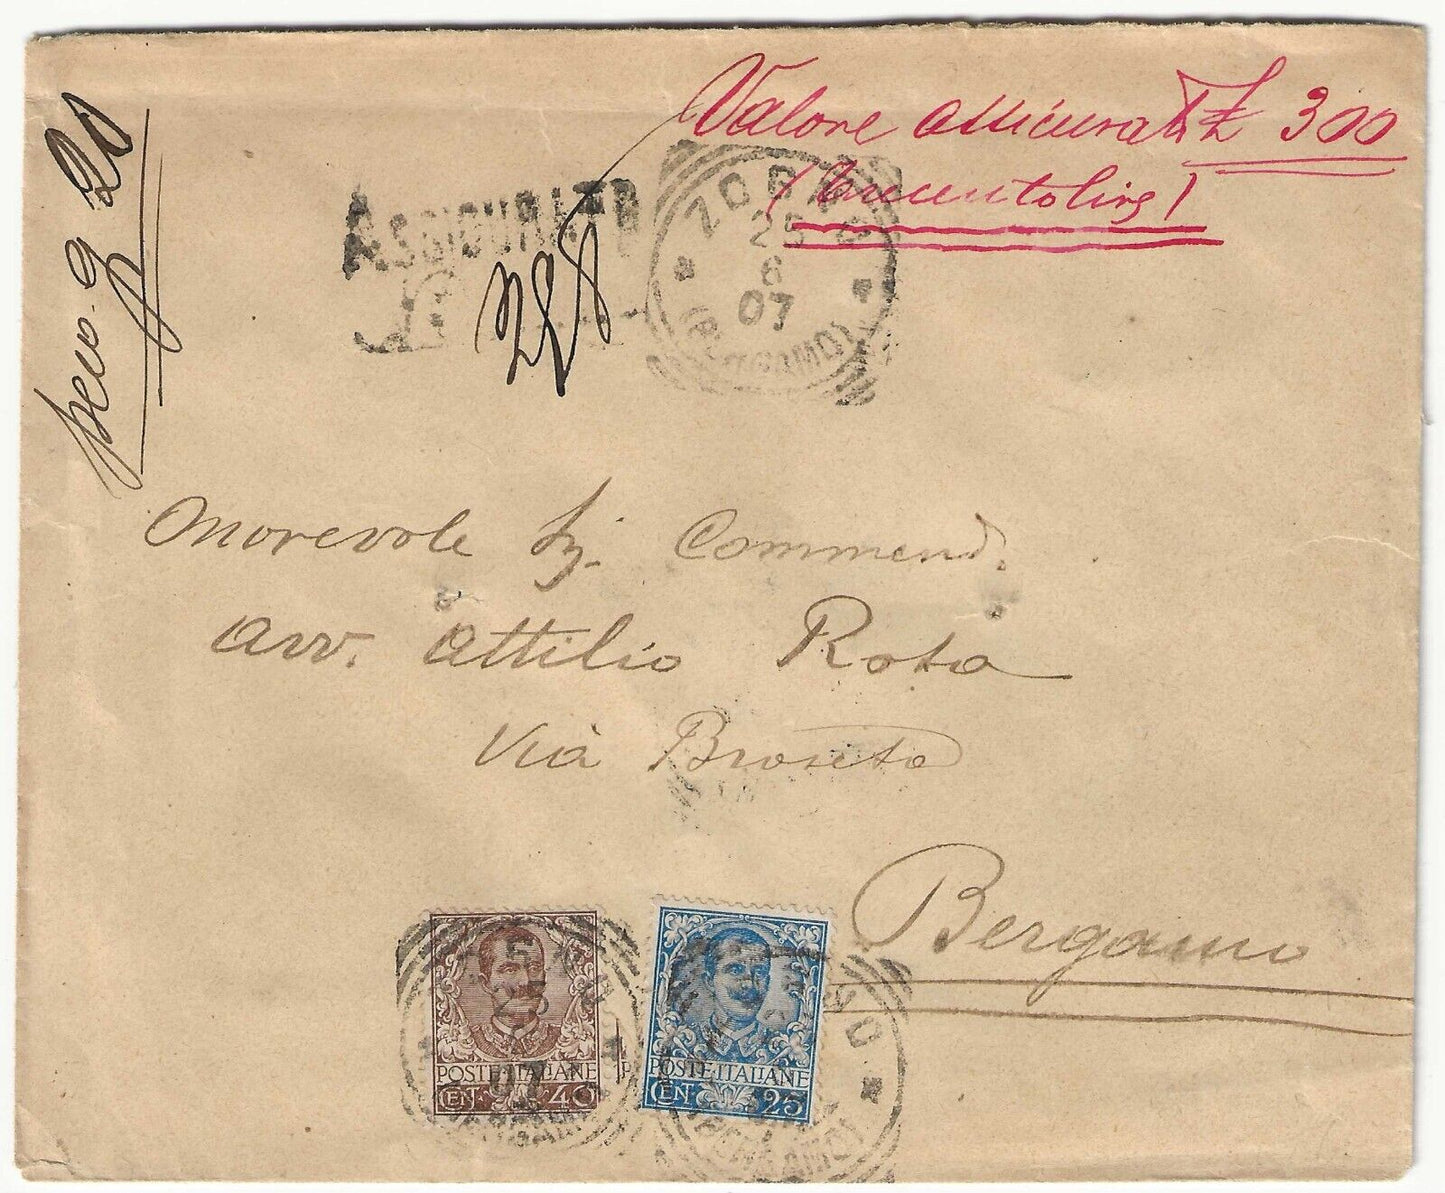 Valore assicurato £ 300
(trecentolire)
peso g 20
ASSICURATO
328
ZORNO
25
6
07
(BERGAMO)
Onorevole Sig. Commend.
Avv. Attilio Rota
Via Broseta
Bergamo
POSTE·ITALIANE
CENT. 40
POSTE·ITALIANE
CENT. 25
07
(BERGAMO)